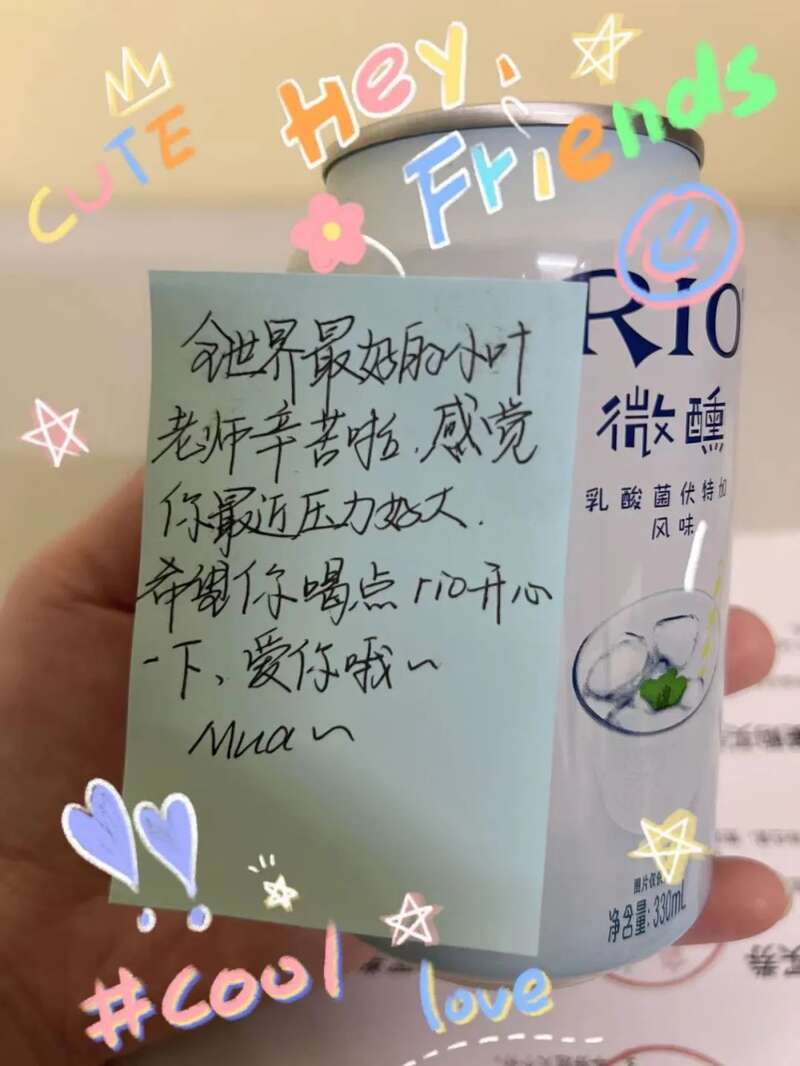 CUTE
Hey,
Friends
全世界最好的小叶
老师辛苦啦,感觉
你最近压力好大.
希望你喝点rio开心
一下、爱你哦~
Mua~
RIO
微醺
乳酸菌伏特加
风味
净含量:330mL
#cool
love